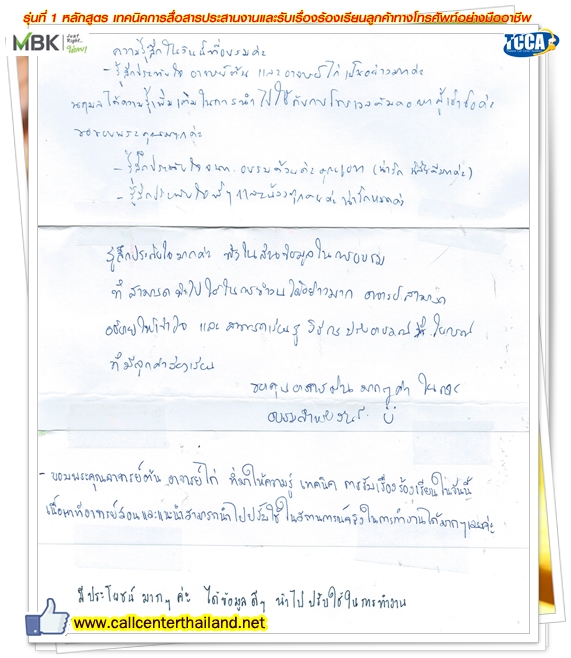 รุ่นที่ 1 หลักสูตร เทคนิคการสื่อสารประสานงานและรับเรื่องร้องเรียนลูกค้าทางโทรศัพท์อย่างมืออาชีพ
MBK just Right.. TCCA
ความรู้สึกในวันนี้ที่อบรมค่ะ
- รู้สึกประทับใจ อาจารย์ตัน และอาจารย์ไก่ เป็นอย่างมากค่ะ
ได้ความรู้เพิ่มเติมในการนำไปใช้กับการ
ขอขอบพระคุณมากค่ะ
- รู้สึกประทับใจ อบรมด้วยค่ะ (น่ารัก
- รู้สึกประทับใจพี่ๆ และน้องๆทุกคนค่ะ น่ารักมากค่ะ
รู้สึกประทับใจมากค่ะ ทั้งในส่วนข้อมูลในการอบรม
ที่สามารถนำไปใช้ในการทำงานได้อย่างมาก อาจารย์สามารถ
อธิบายให้เข้าใจ และสามารถเรียนรู้ วิธีการปรับอารมณ์ ในกรณี
ที่มีลูกค้าร้องเรียน
ขอบคุณอาจารย์ มากๆค่ะ ในการ
อบรมสำหรับวันนี้
- ขอบพระคุณอาจารย์ตัน อาจารย์ไก่ ที่มาให้ความรู้ เทคนิค การรับเรื่องร้องเรียนในวันนี้
เนื้อหาที่อาจารย์สอนและแนะนำสามารถนำไปปรับใช้ในสถานการณ์จริงในการทำงานได้มากๆเลยค่ะ
มีประโยชน์ มากๆ ค่ะ ได้ข้อมูลดีๆ นำไปปรับใช้ในการทำงาน
www.callcenterthailand.net